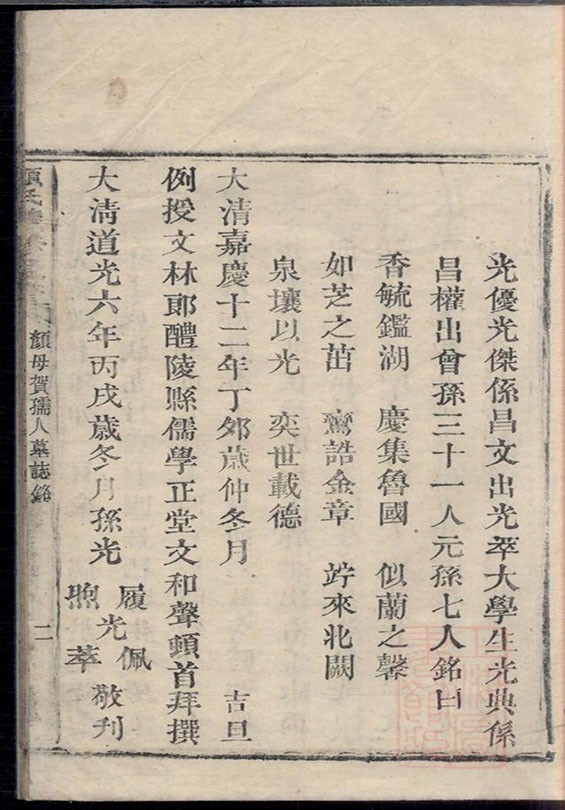 光優光傑係昌文出光萃大學生光典係
昌權出曾孫三十一人元孫七人銘曰
香毓鑑湖 慶集魯國 似蘭之馨
如芝之茁 鸞誥金章 竚來北闕
泉壤以光 奕世載德
大清嘉慶十二年丁夘歲仲冬月 吉旦
例授文林郎醴陵縣儒學正堂文和聲頓首拜撰
大清道光六年丙戌歲冬月孫光 履光佩 煦萃 敬刊
顏母賀孺人墓誌銘 二